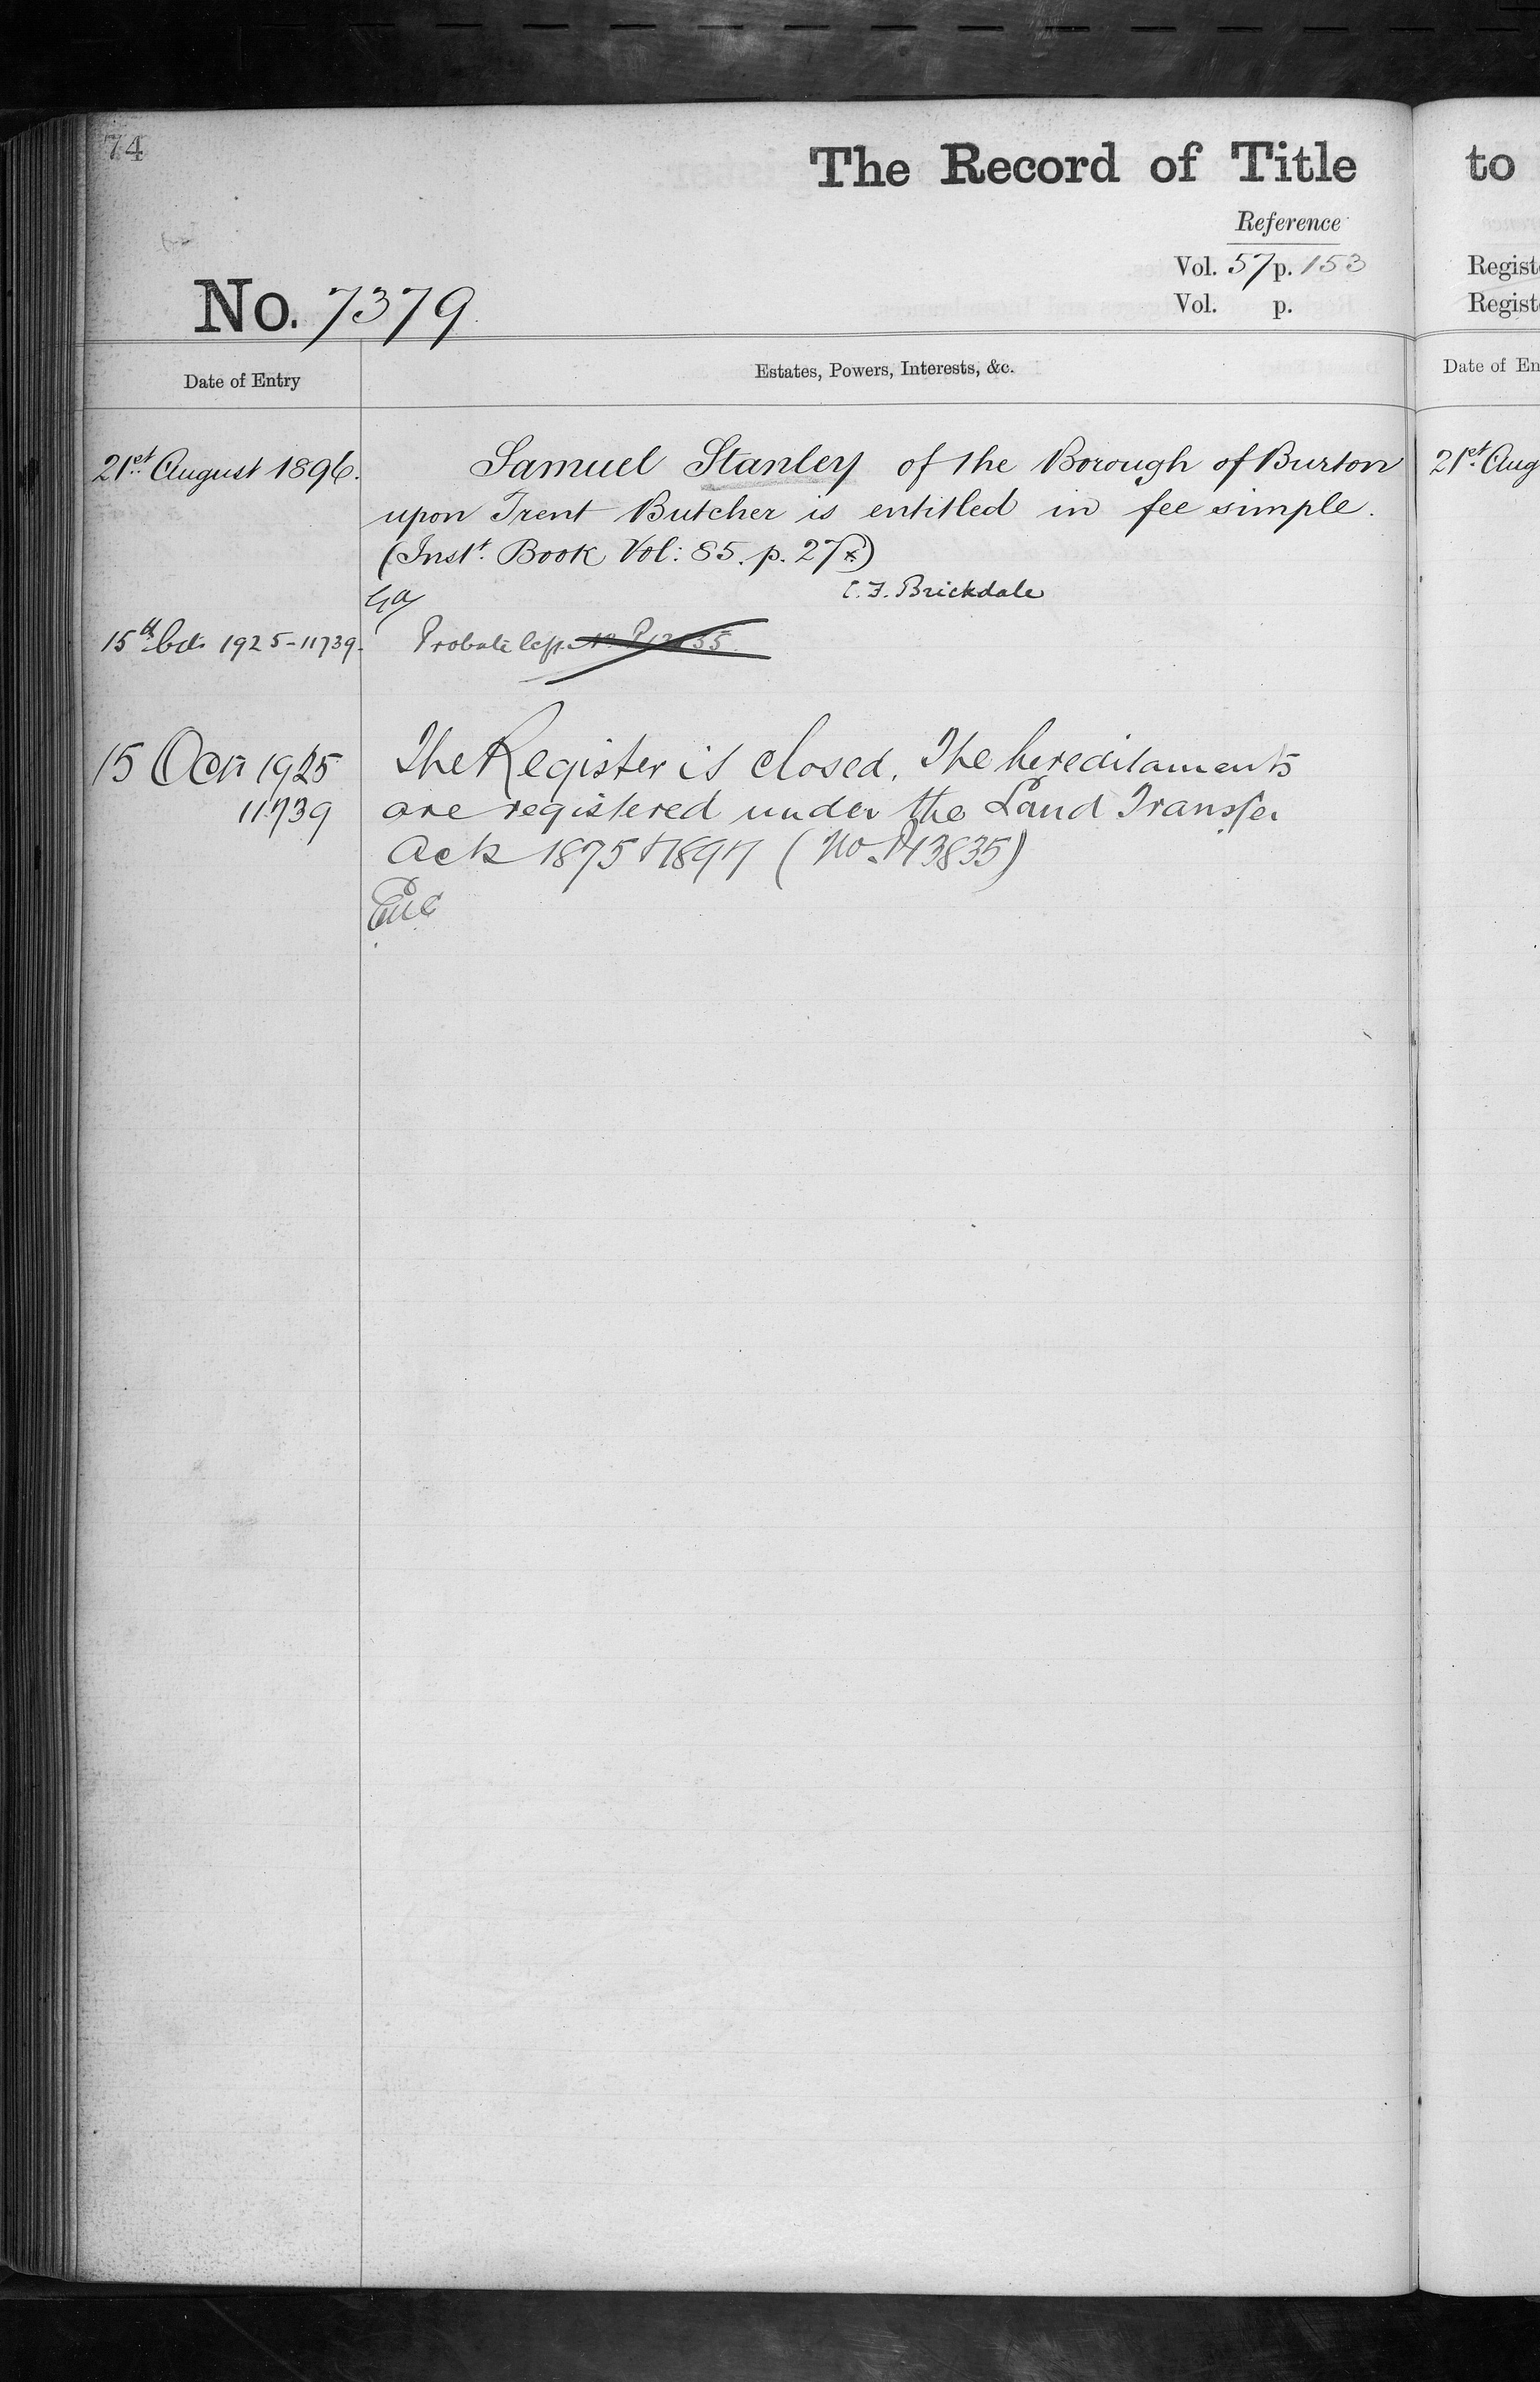 74
The Record of Title
to
Reference
Vol. 57 p. 153
Regist
No. 7379
Vol. p.
Regist
Date of Entry
Estates, Powers, Interests, &c.
Date of En
21st August 1896.
Samuel Stanley of the Borough of Burton
21st Aug
upon Trent Butcher is entitled in fee simple.
(Inst. Book Vol: 85. p. 27
C. F. Brickdale
15th Oct. 1925-11739.
Probate
15 Oct 1925
The Register is closed. The hereditaments
11739
are registered under the Land Transfer
Acts 1875 & 1897 (No. P43835)